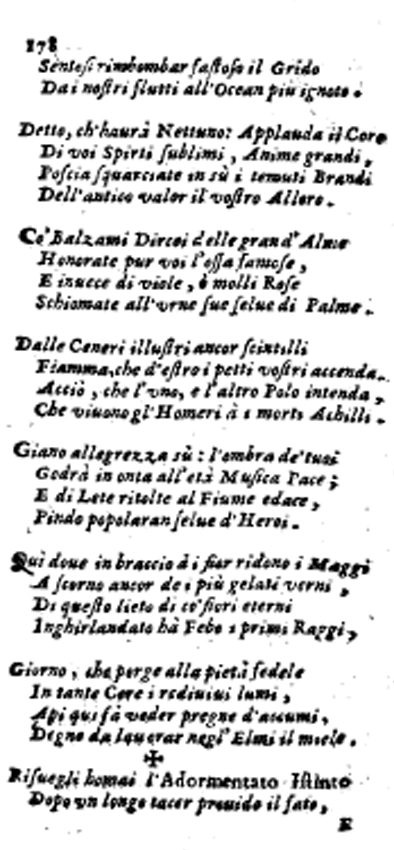 178
Sentesi rimbombar fastoso il Grido
Dai nostri flutti all'Ocean più ignoto.
Detto, ch'haurà Nettuno: Applauda il Coro
Di voi Spirti sublimi, Anime grandi,
Poscia squarciate in sù i temuti Brandi
Dell'antico valor il vostro Alloro.
Co' Balzami Dircei delle grand' Alme
Honorate pur voi l'ossa famose,
E inuece di viole, ò molli Rose
Schiomate all'vrne sue selue di Palme.
Dalle Ceneri illustri ancor scintilli
Fiamma, che d'estro i petti vostri accenda.
Acciò, che l'vno, e l'altro Polo intenda,
Che viuono gl'Homeri à i morti Achilli.
Giano allegrezza sù: l'ombra de' tuoi
Godrà in onta all'età Musica Pace;
E di Lete ritolte al Fiume edace,
Pindo popolaran selue d'Heroi.
Quì doue in braccio à i fior ridono i Maggi
A scorno ancor de i più gelati verni,
Di questo lieto di co' fiori eterni
Inghirlandato hà Febo i primi Raggi,
Giorno, che porge alla pietà fedele
In tante Core i rediuiui lumi,
Api qui fà veder pregne d'acumi,
Degne da lauorar negl' Elmi il miele.
✠
Risuegli homai l'Adormentato Istinto
Dopo vn longo tacer preuido il fato,
E